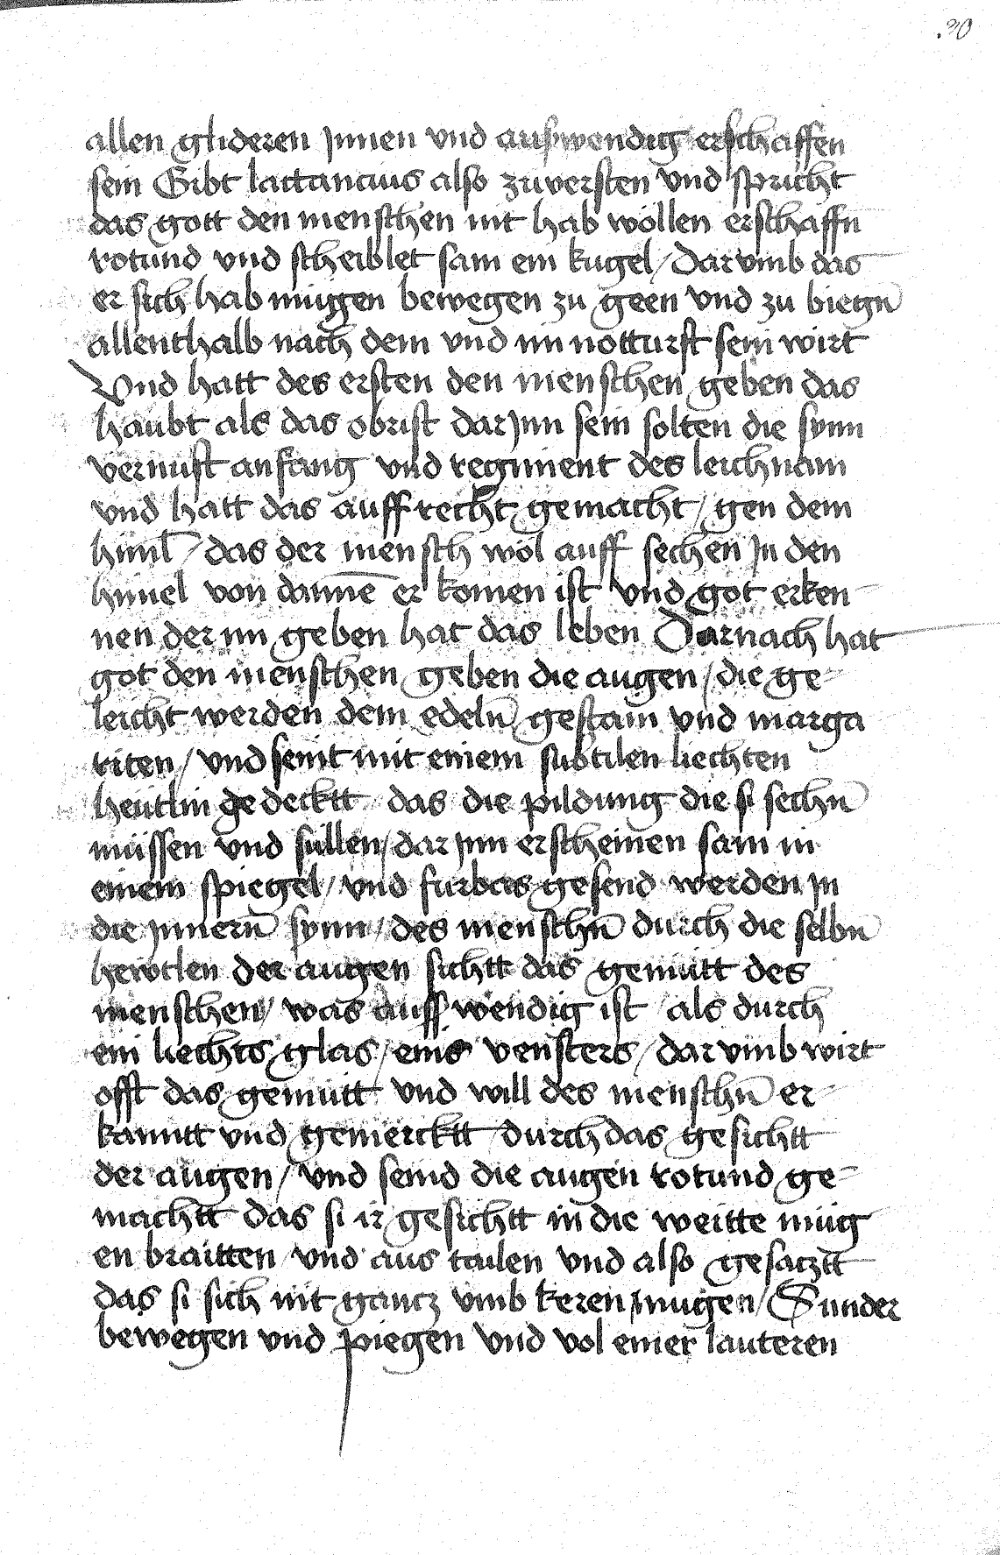 .30
allen glideren Jnnen vnd auswendig erschaffen
sein Gibt lactancius also zuversten vnd spricht
das gott den menschen nit hab wöllen erschaffn
rotund vnd scheiblet sam ein kugel / Dar vmb das
er sich hab mügen bewegen zu geen vnd zu biegn̄
allenthalb nach dem vnd im notturft sein wirt
Vnd hatt des ersten den menschen geben das
haubt als das obrist dar Jnn sein solten die synn
vernuft anfang vnd regiment des leichnam
vnd hatt das auffrecht gemacht / gen dem
himl / das der mensch wol auff sechen Jn den
himel von dannē er komen ist vnd got erken-
nen der im geben hat das leben Darnach hat
got den menschen geben die augen / die ge-
leicht werden dem edeln̄ gestain vnd marga
riten / vnd seint mit einem subtilen liechten
heütlin gedecktt das die pildung die si sechn̄
müssen vnd süllen / dar Jnn erscheinen sam in
einem spiegel / vnd furbas gesend werden Jn
die Jnnern̄ synn / des menschn̄ durch die selbn̄
hewtlen der augen sichtt das gemütt des
menschen / was auff wendig ist als durch
ein liechts glas / eins vensters / dar vmb wirt
offt das gemütt vnd will des menschn̄ er-
kanntt vnd gemercktt durch das gesichtt
der augen / vnd seind die augen rotund ge-
machtt das si ir gesichtt in die weitte müg
en braitten vnd aus tailen vnd also gesatztt
das si sich nit gancz vmb keren mugen / Sunder
bewegen vnd piegen vnd vol einer lauteren